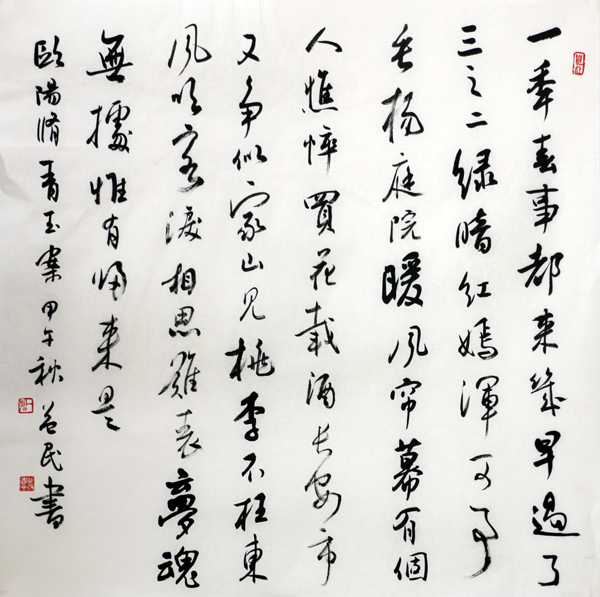 一秊春事都来幾早過了
三之二绿暗红嫣渾可事
垂楊庭院暖风帘幕有個
人憔悴買花載酒長安市
又争似家山見桃李不枉東
风吹客淚相思難表夢魂
無據惟有歸来是
歐陽脩青玉案甲午秋益民書